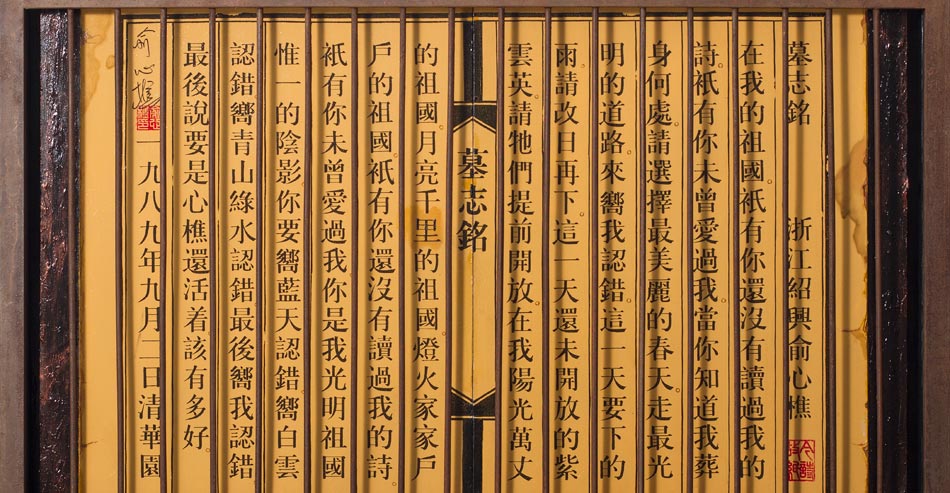 墓志銘 浙江紹興俞心樵
在我的祖國。衹有你還沒有讀過我的
詩。衹有你未曾愛過我。當你知道我葬
身何處。請選擇最美麗的春天。走最光
明的道路。來嚮我認錯。這一天要下的
雨。請改日再下。這一天還未開放的紫
雲英。請牠們提前開放。在我陽光萬丈
墓志銘
的祖國。月亮千里的祖國。燈火家家戶
戶的祖國。衹有你還沒有讀過我的詩
衹有你未曾愛過我你是我光明祖國
惟一的陰影你要嚮藍天認錯嚮白雲
認錯嚮青山綠水認錯最後嚮我認錯
最後說要是心樵還活着該有多好。
俞心樵
一九八九年九月二日清華園